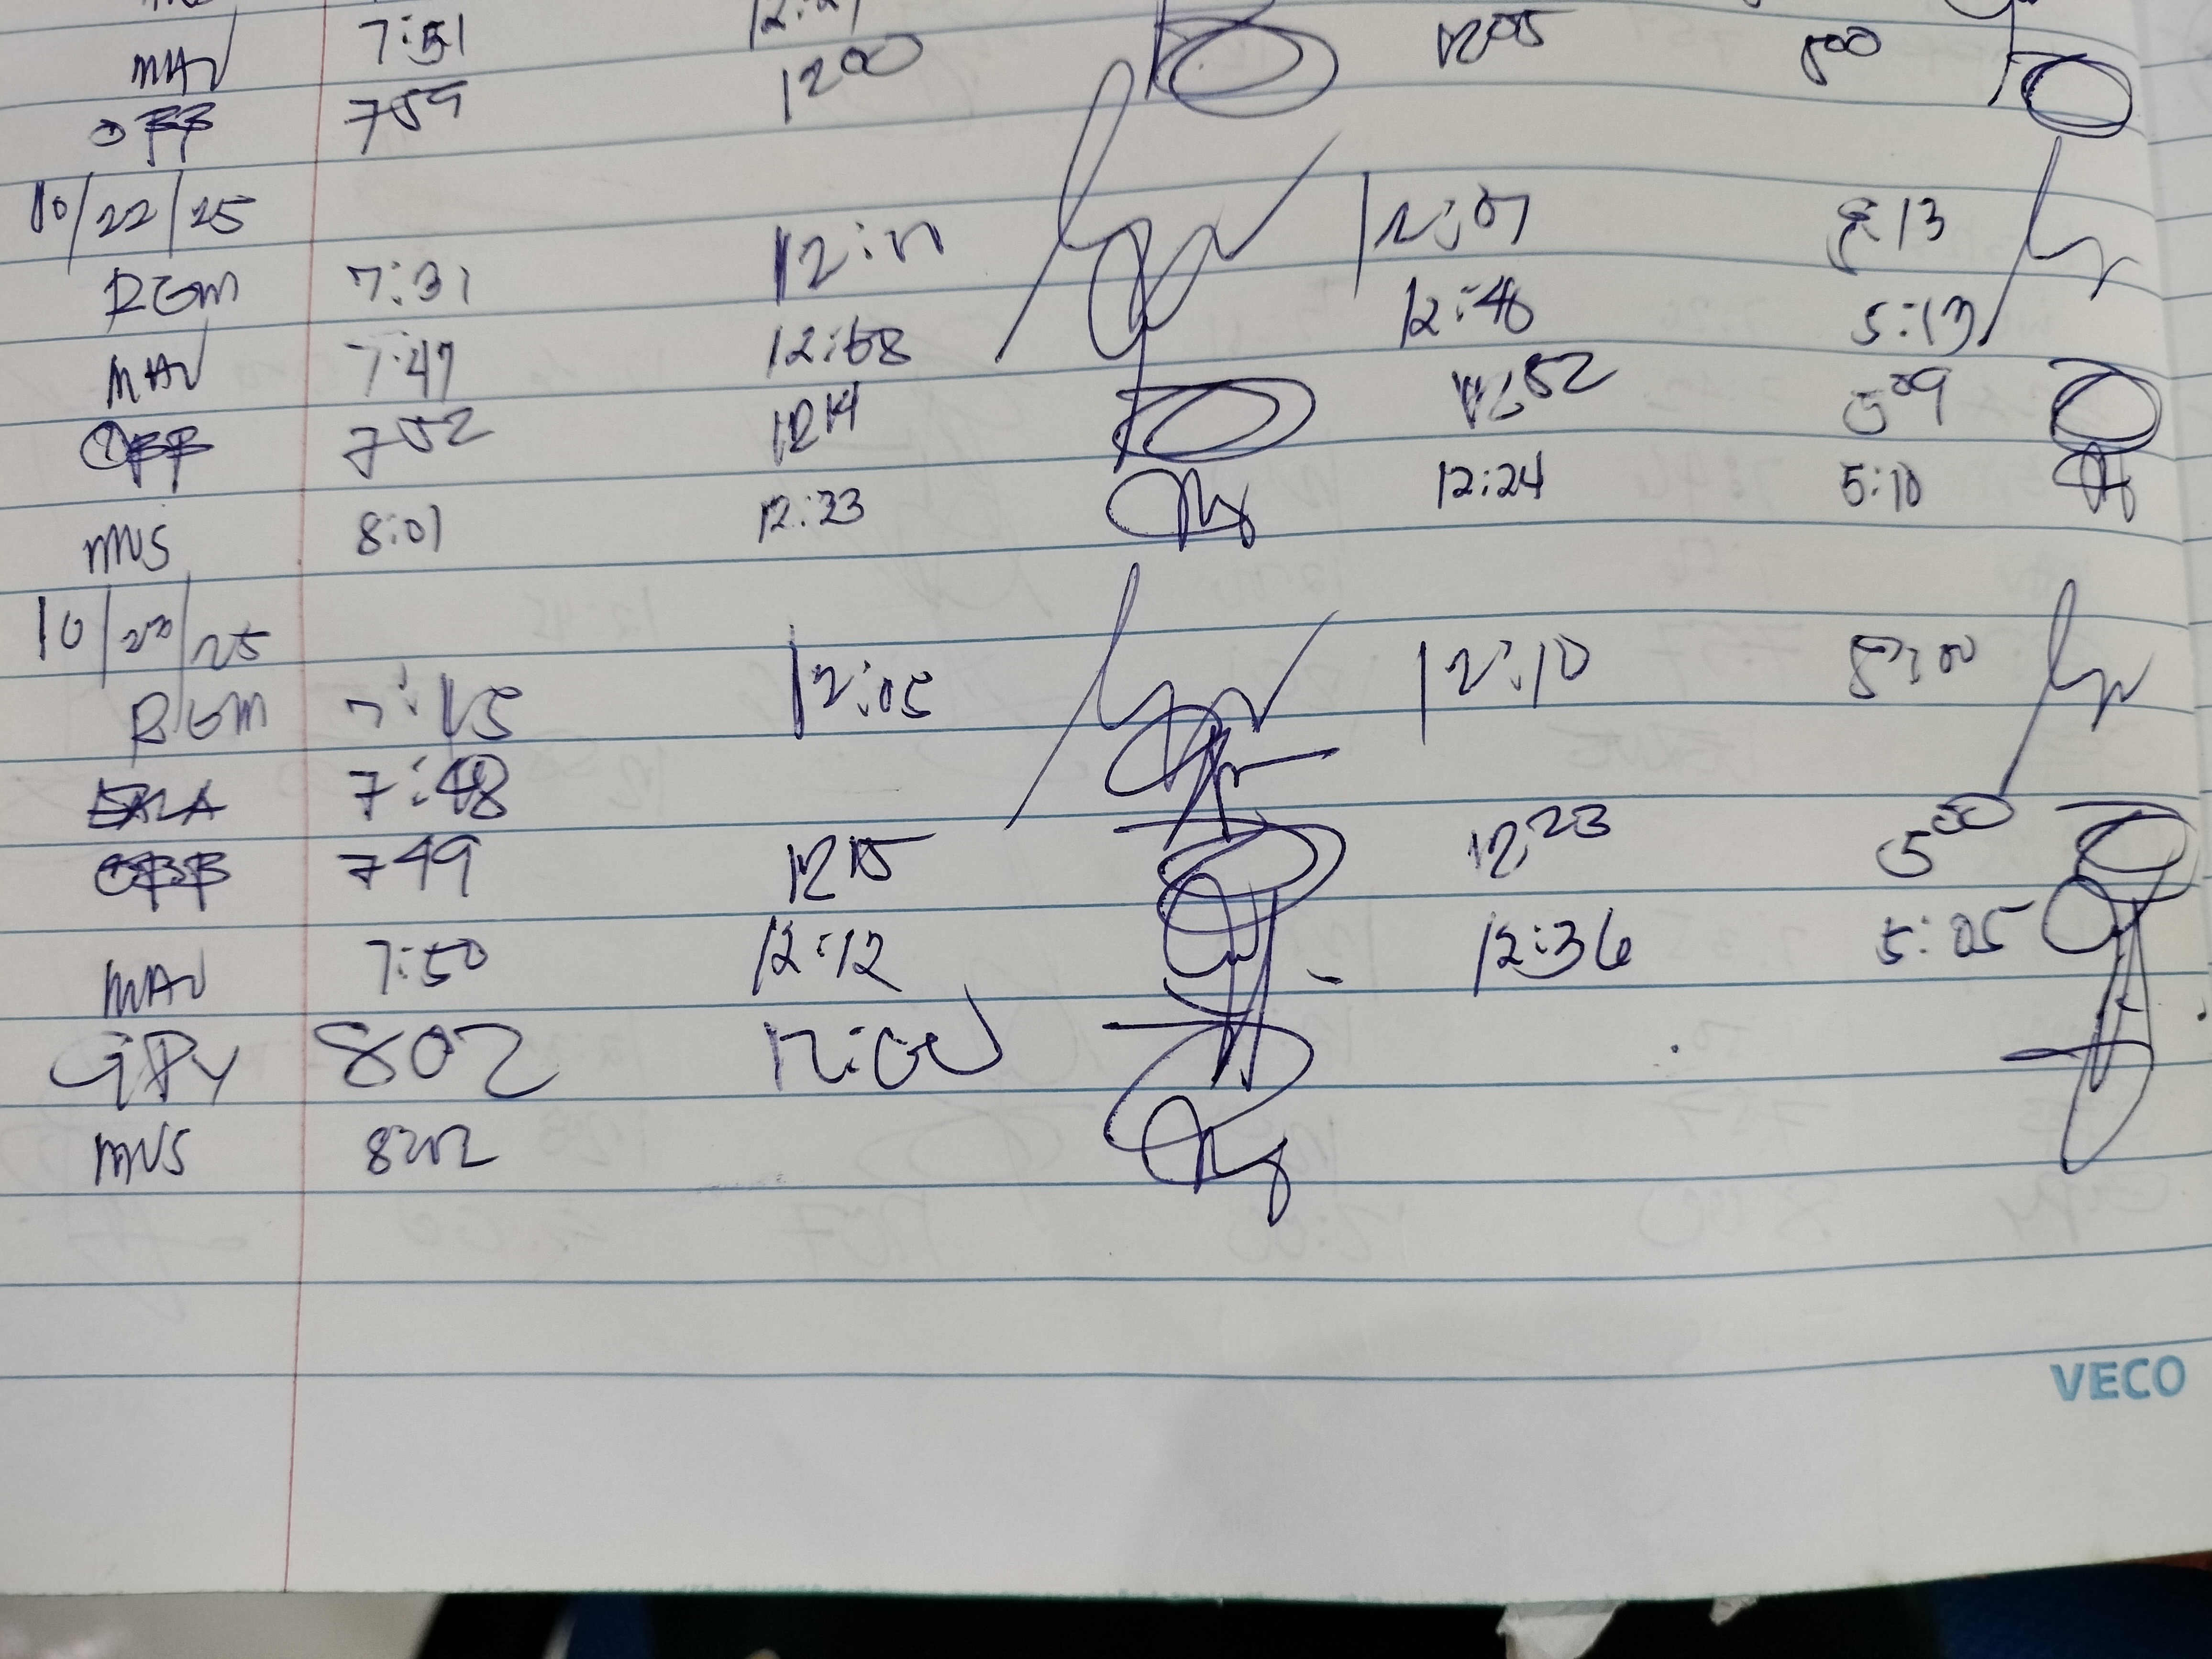 MAV 7:51 12:21 1205 500
OFF 759 1200
10/22/25
RGM 7:31 12:11 12:07 5:13
MAV 7:47 12:48 5:13
OFF 752 1214 1252 509
MVS 8:01 12:23 12:24 5:10
10/23/25
RGM 7:15 12:05 12:10 5:00
7:48
OFF 749 1215 1223 500
MAV 7:50 12:12 12:36 5:05
GPY 802 12:00
MVS 8:02
VECO